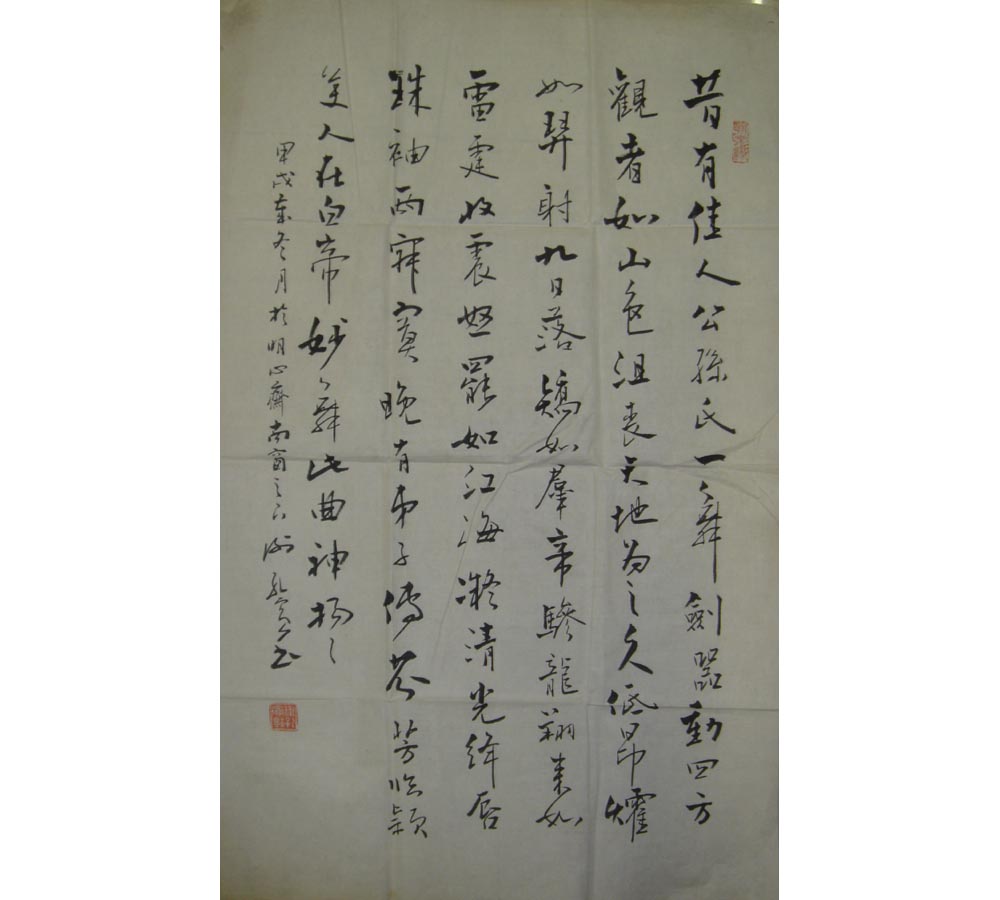 昔有佳人公孫氏一舞劍器動四方
觀者如山色沮喪天地為之久低昂㸌
如羿射九日落矯如羣帝驂龍翔來如
雷霆收震怒罷如江海凝清光絳唇
珠袖兩寂寞晚有弟子傳芬芳臨潁
美人在白帝妙舞此曲神揚々
甲戌年冬月於明心齋南窗之下書